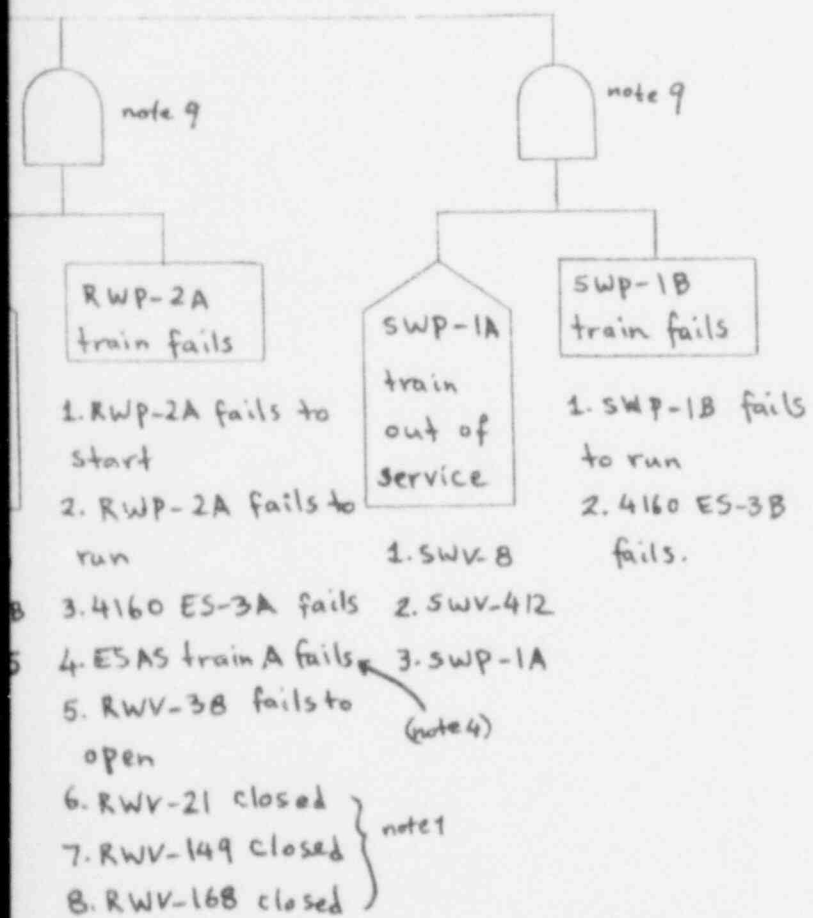 note 9
note 9
RWP-2A
train fails
SWP-1A
train
out of
service
SWP-1B
train fails
1. RWP-2A fails to
start
2. RWP-2A fails to
run
3. 4160 ES-3A fails
4. ESAS train A fails
(note 4)
5. RWV-38 fails to
open
6. RWV-21 closed
7. RWV-149 closed
8. RWV-168 closed
note 1
1. SWV-8
2. SWV-412
3. SWP-1A
1. SWP-1B fails
to run
2. 4160 ES-3B
fails.
B